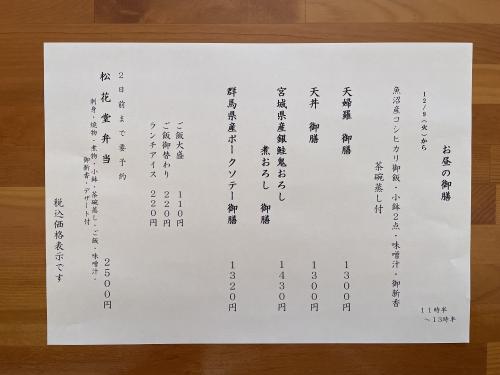 12/9(火)から
お昼の御膳
11時半
～13時半
魚沼産コシヒカリ御飯・小鉢2点・味噌汁・御新香
茶碗蒸し付
天婦羅 御膳 1300円
天丼 御膳 1300円
宮城県産銀鮭鬼おろし
煮おろし 御膳 1430円
群馬県産ポークソテー御膳 1320円
ご飯大盛 110円
ご飯御替わり 220円
ランチアイス 220円
2日前まで要予約
松花堂弁当 2500円
刺身・焼物・煮物・小鉢・茶碗蒸し・ご飯・味噌汁・
御新香・デザート付
税込価格表示です